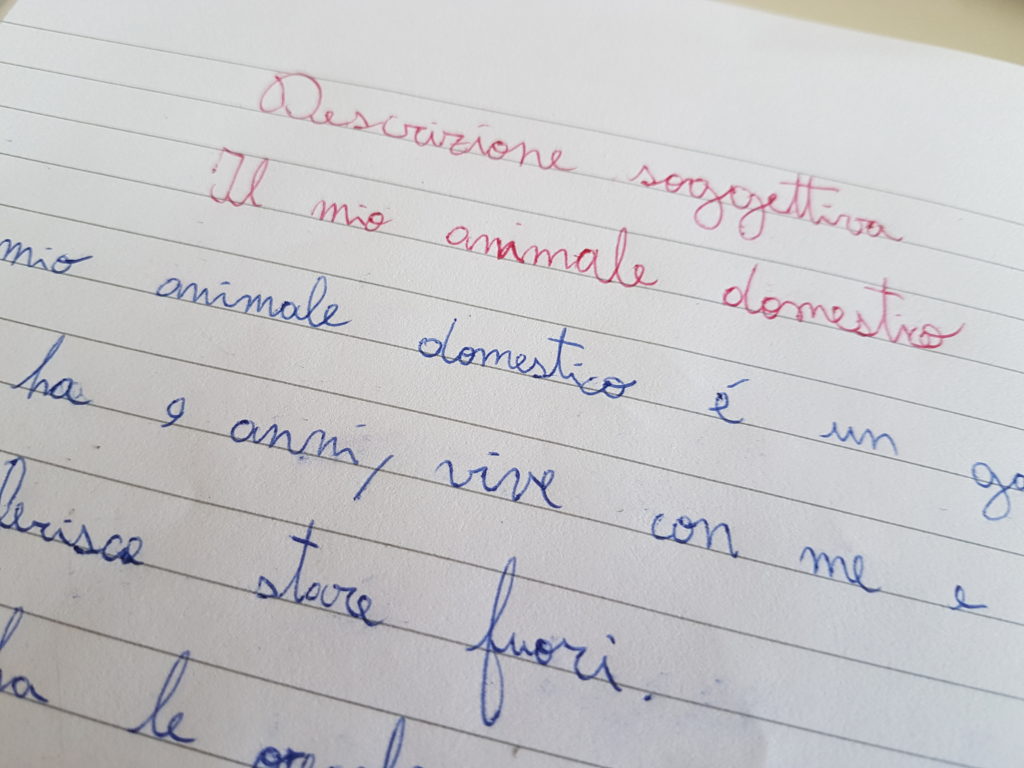 Descrizione soggettiva
Il mio animale domestico
mio animale domestico é un
ha 9 anni, vive con me e
stare fuori.
le